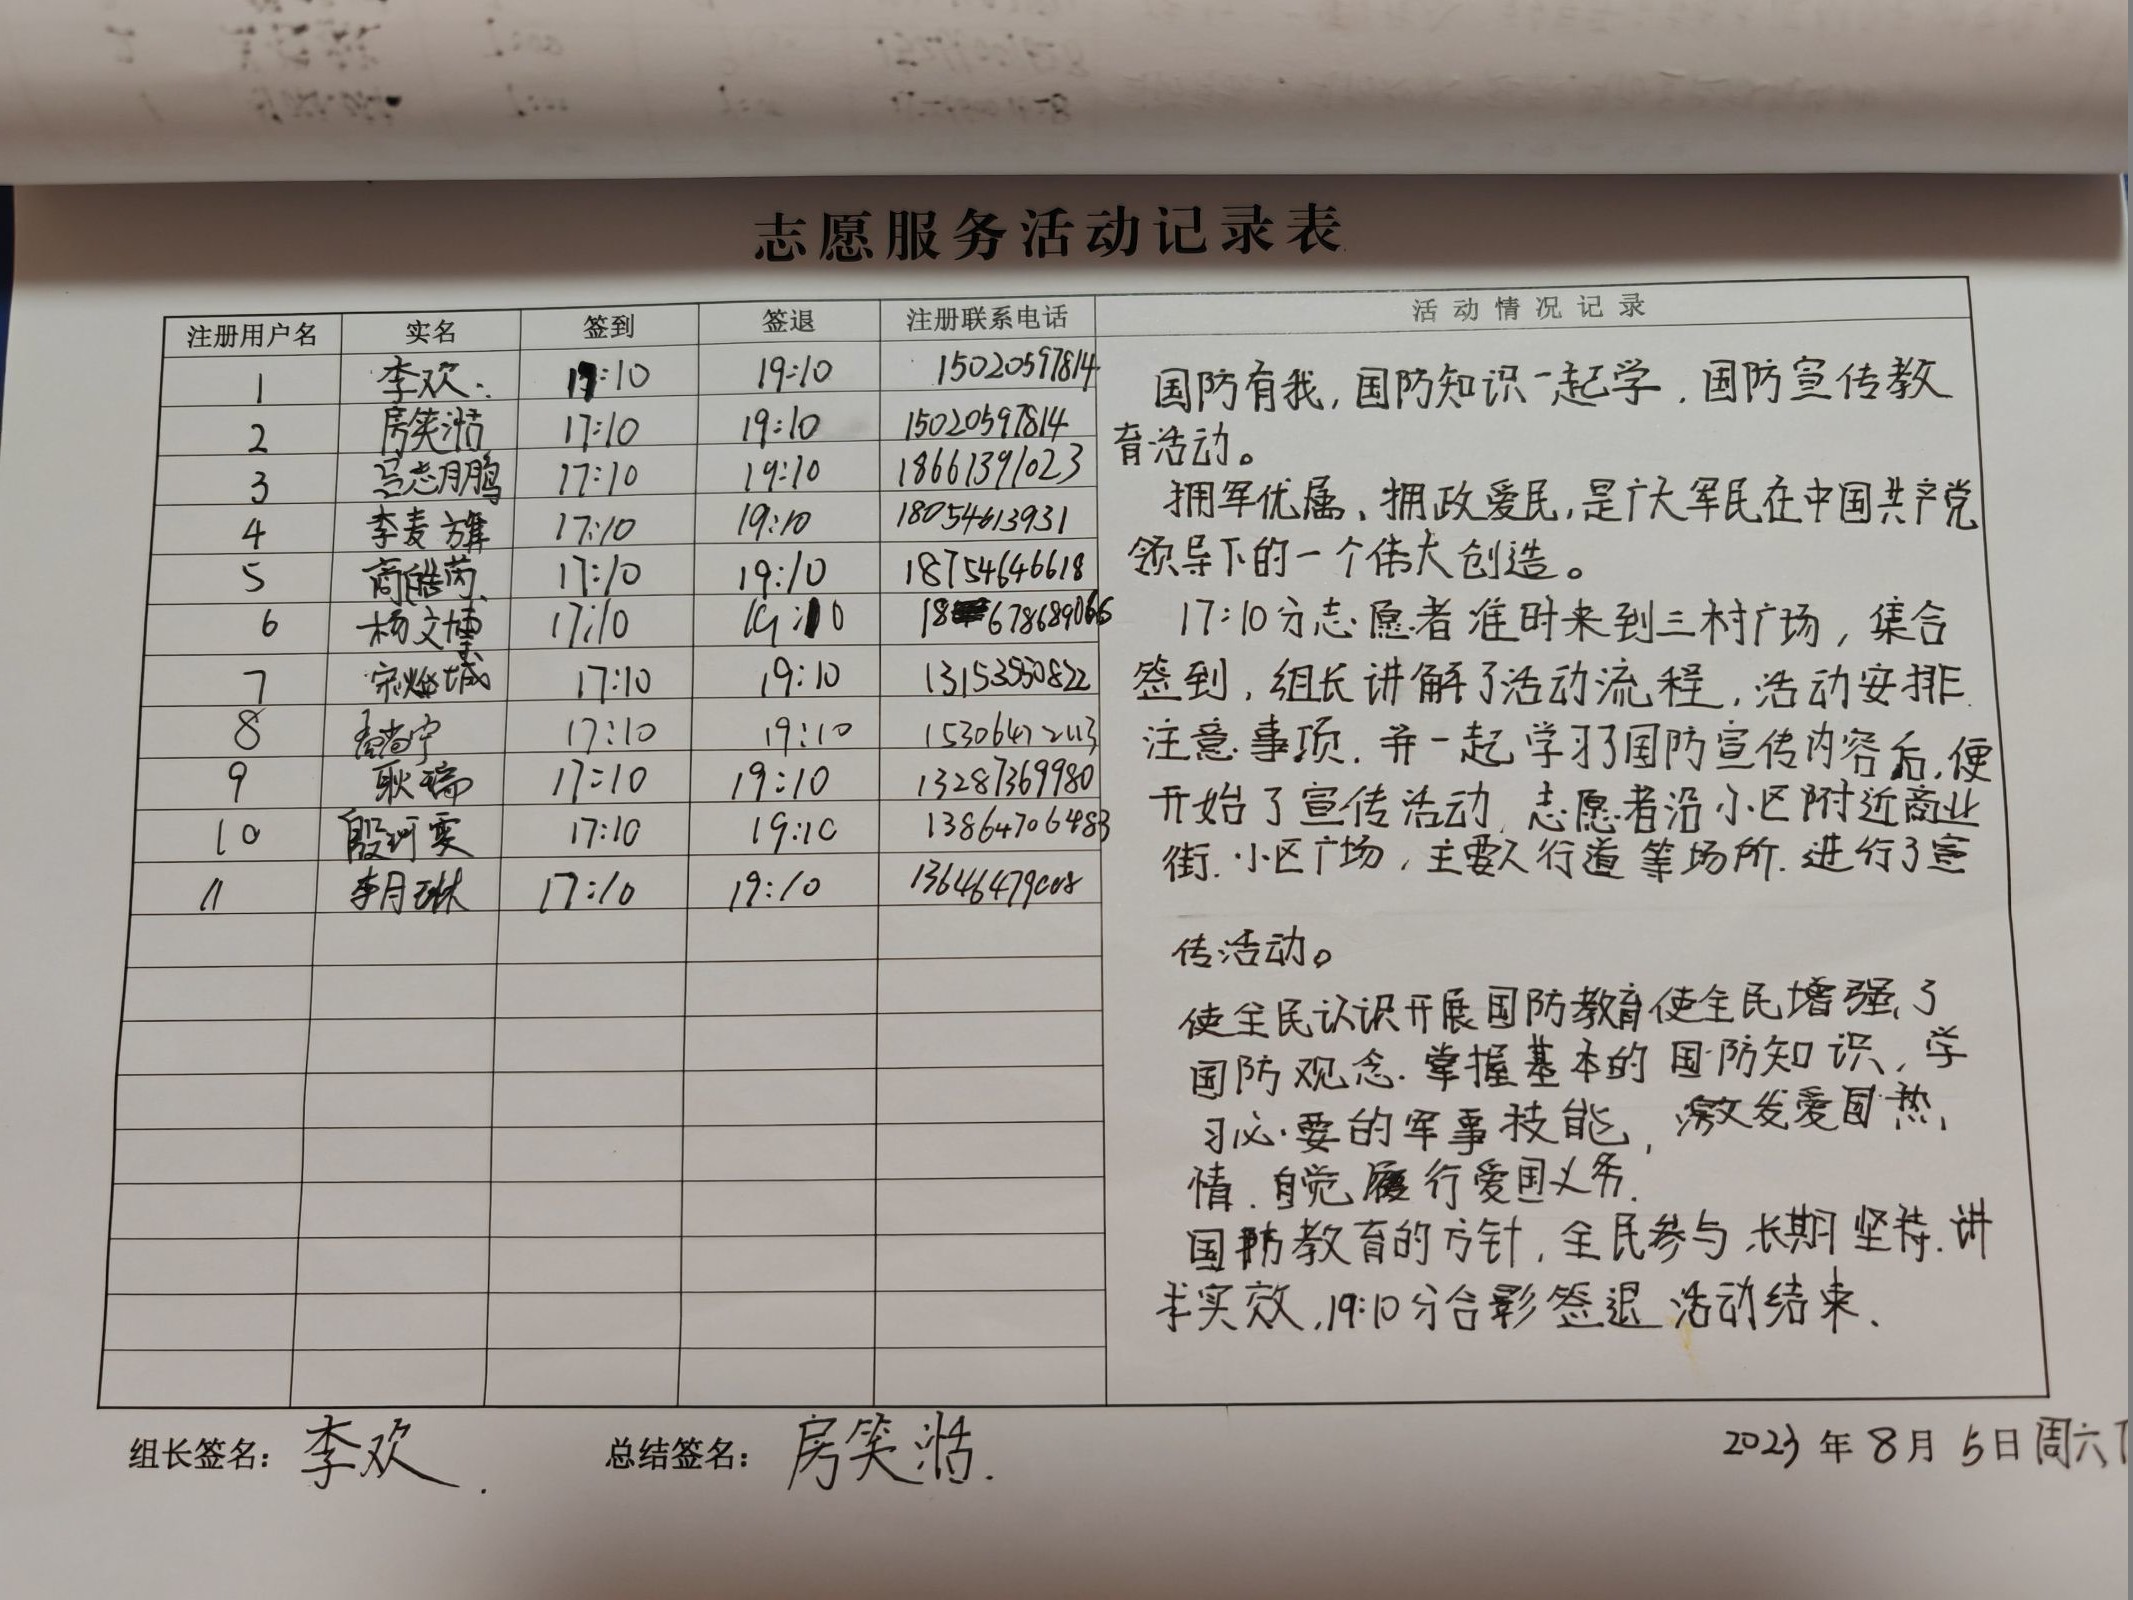 志愿服务活动记录表
注册用户名 实名 签到 签退 注册联系电话 活动情况记录
1 李欢. 17:10 19:10 15020597814
2 房笑湉 17:10 19:10 15020597814
3 吕志鹏 17:10 19:10 18661391023
4 李麦旗 17:10 19:10 18054613931
5 高皓芮 17:10 19:10 18754646618
6 杨文博 17:10 19:10 18678689066
7 宋 城 17:10 19:10 13153550822
8 宁 17:10 19:10 15306472113
9 耿瑞 17:10 19:10 13287369980
10 殷珂雯 17:10 19:10 13864706483
11 李月琳 17:10 19:10
国防有我,国防知识一起学.国防宣传教
育活动。
拥军优属、拥政爱民,是广大军民在中国共产党
领导下的一个伟大创造。
17:10分志愿者准时来到三村广场,集合
签到,组长讲解了活动流程,活动安排.
注意事项.并一起学习了国防宣传内容后,便
开始了宣传活动,志愿者沿小区附近商业
街.小区广场,主要人行道等场所.进行了宣
传活动。
使全民认识开展国防教育使全民增强了
国防观念.掌握基本的国防知识,学
习必要的军事技能,激发爱国热
情.自觉履行爱国义务.
国防教育的方针,全民参与.长期坚持.讲
求实效,19:10分合影签退 活动结束.
组长签名: 李欢. 总结签名: 房笑湉. 2023年8月5日周六